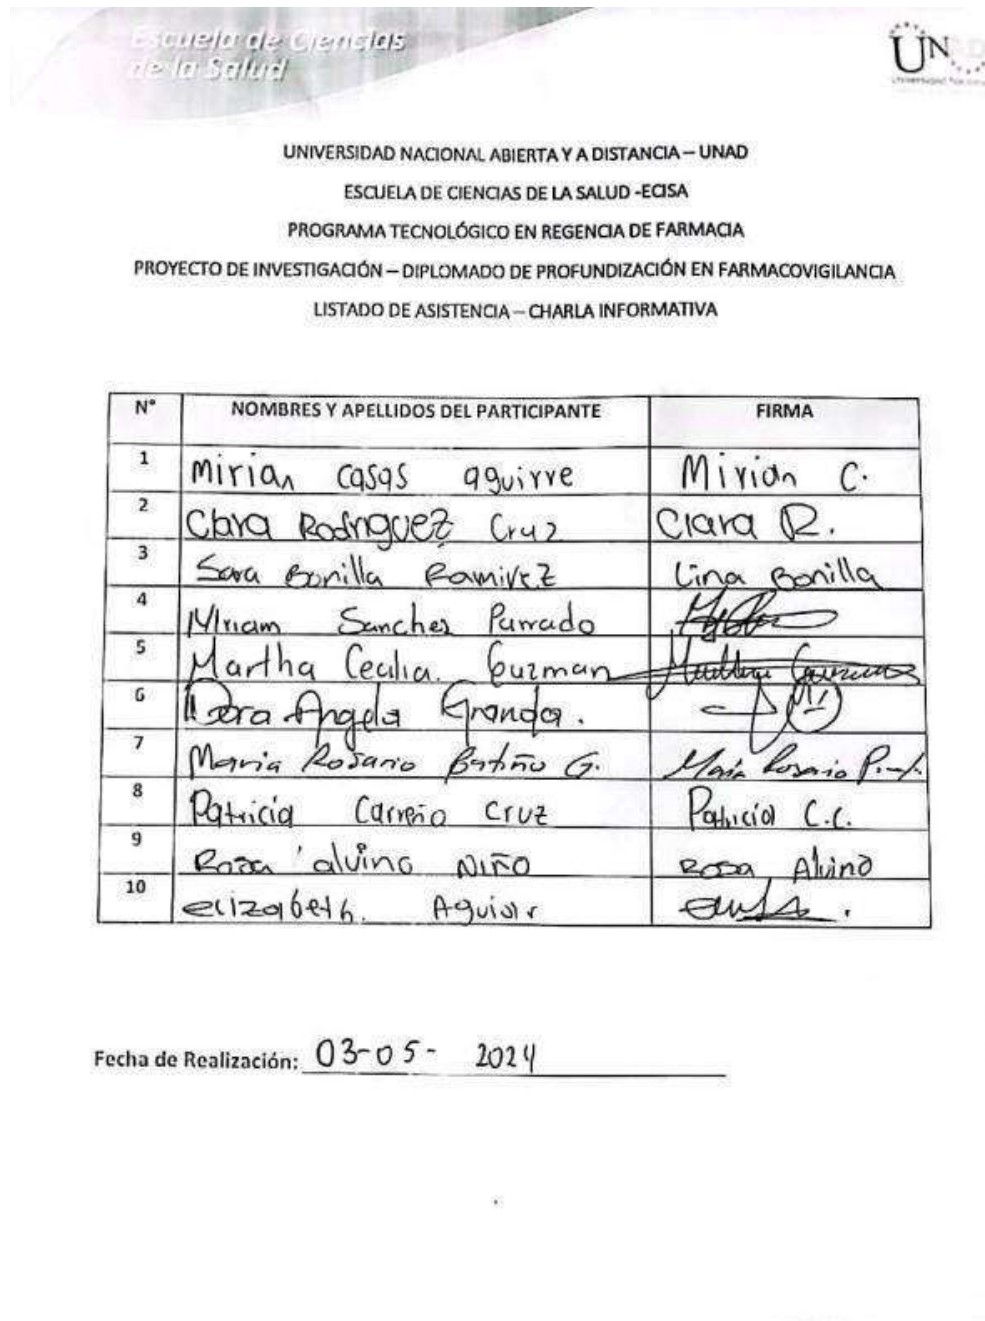 Escuela de Ciencias
de la Salud
UNAD
UNIVERSIDAD NACIONAL ABIERTA Y A DISTANCIA – UNAD
ESCUELA DE CIENCIAS DE LA SALUD -ECISA
PROGRAMA TECNOLÓGICO EN REGENCIA DE FARMACIA
PROYECTO DE INVESTIGACIÓN – DIPLOMADO DE PROFUNDIZACIÓN EN FARMACOVIGILANCIA
LISTADO DE ASISTENCIA – CHARLA INFORMATIVA
N° NOMBRES Y APELLIDOS DEL PARTICIPANTE FIRMA
1 Mirian casas aguirre Mirian C.
2 Clara Rodriguez Cruz Clara R.
3 Sara Bonilla Ramirez Lina Bonilla
4 Miriam Sanchez Parrado
5 Martha Cecilia. Guzman Martha Guzman
6 Dora Angela Granda.
7 Maria Rosario G. María Rosario
8 Patricia Carreño Cruz Patricia C.C.
9 Rosa alvino NIÑO Rosa Alvino
10 elizabeth. Aguiar
Fecha de Realización: 03-05- 2024